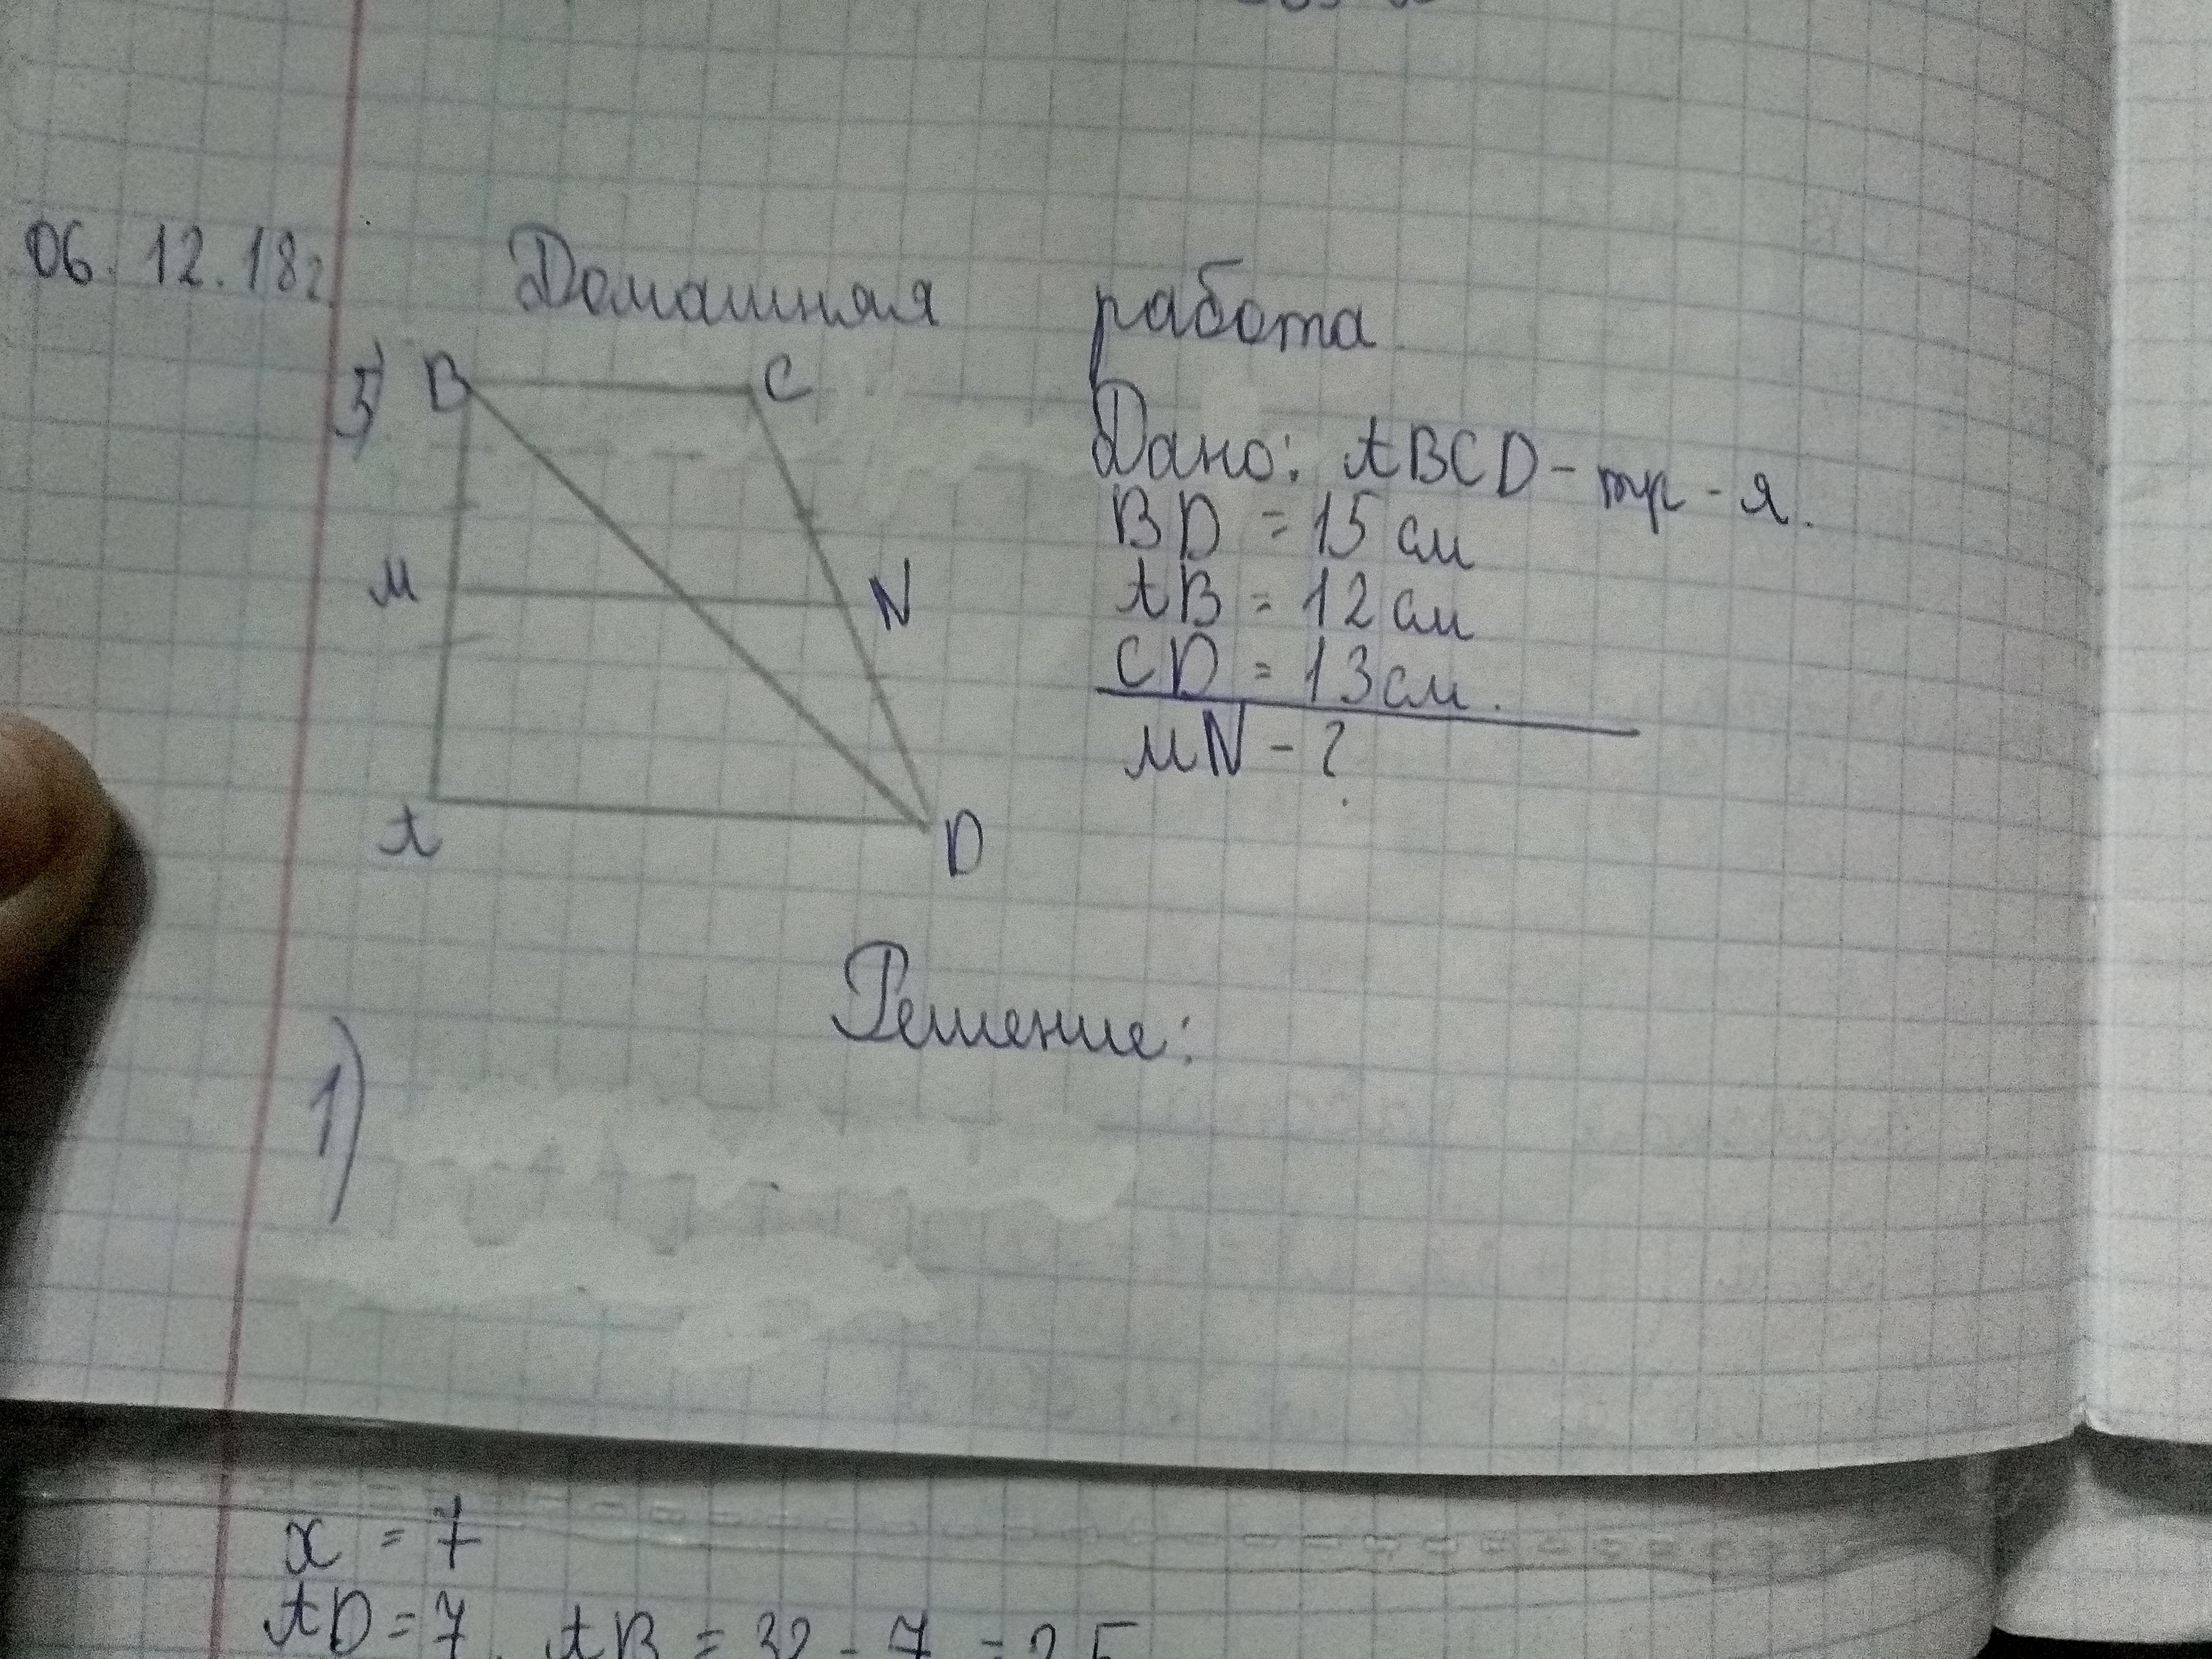 06.12.18г. Домашняя работа
5) B C
Дано: ABCD - тр-я.
BD = 15 см
M N AB = 12 см
CD = 13 см.
MN - ?
A D
Решение:
1)
x = 7
AD = 7, AB = 32 - 7 = 25